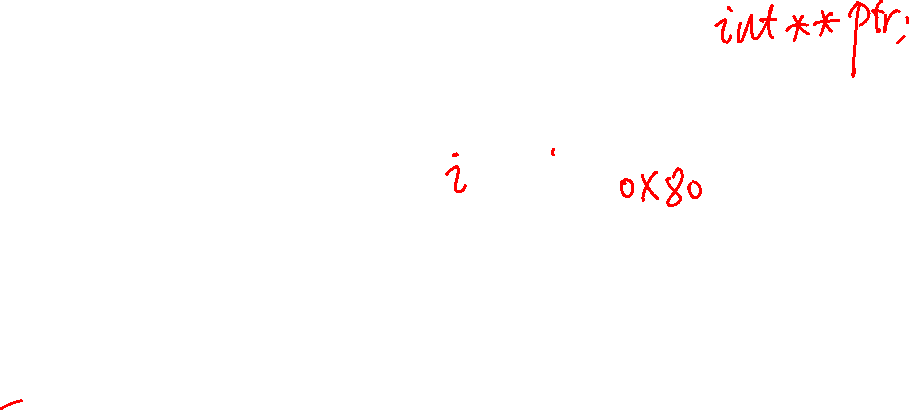 int**ptr;
i 0x80